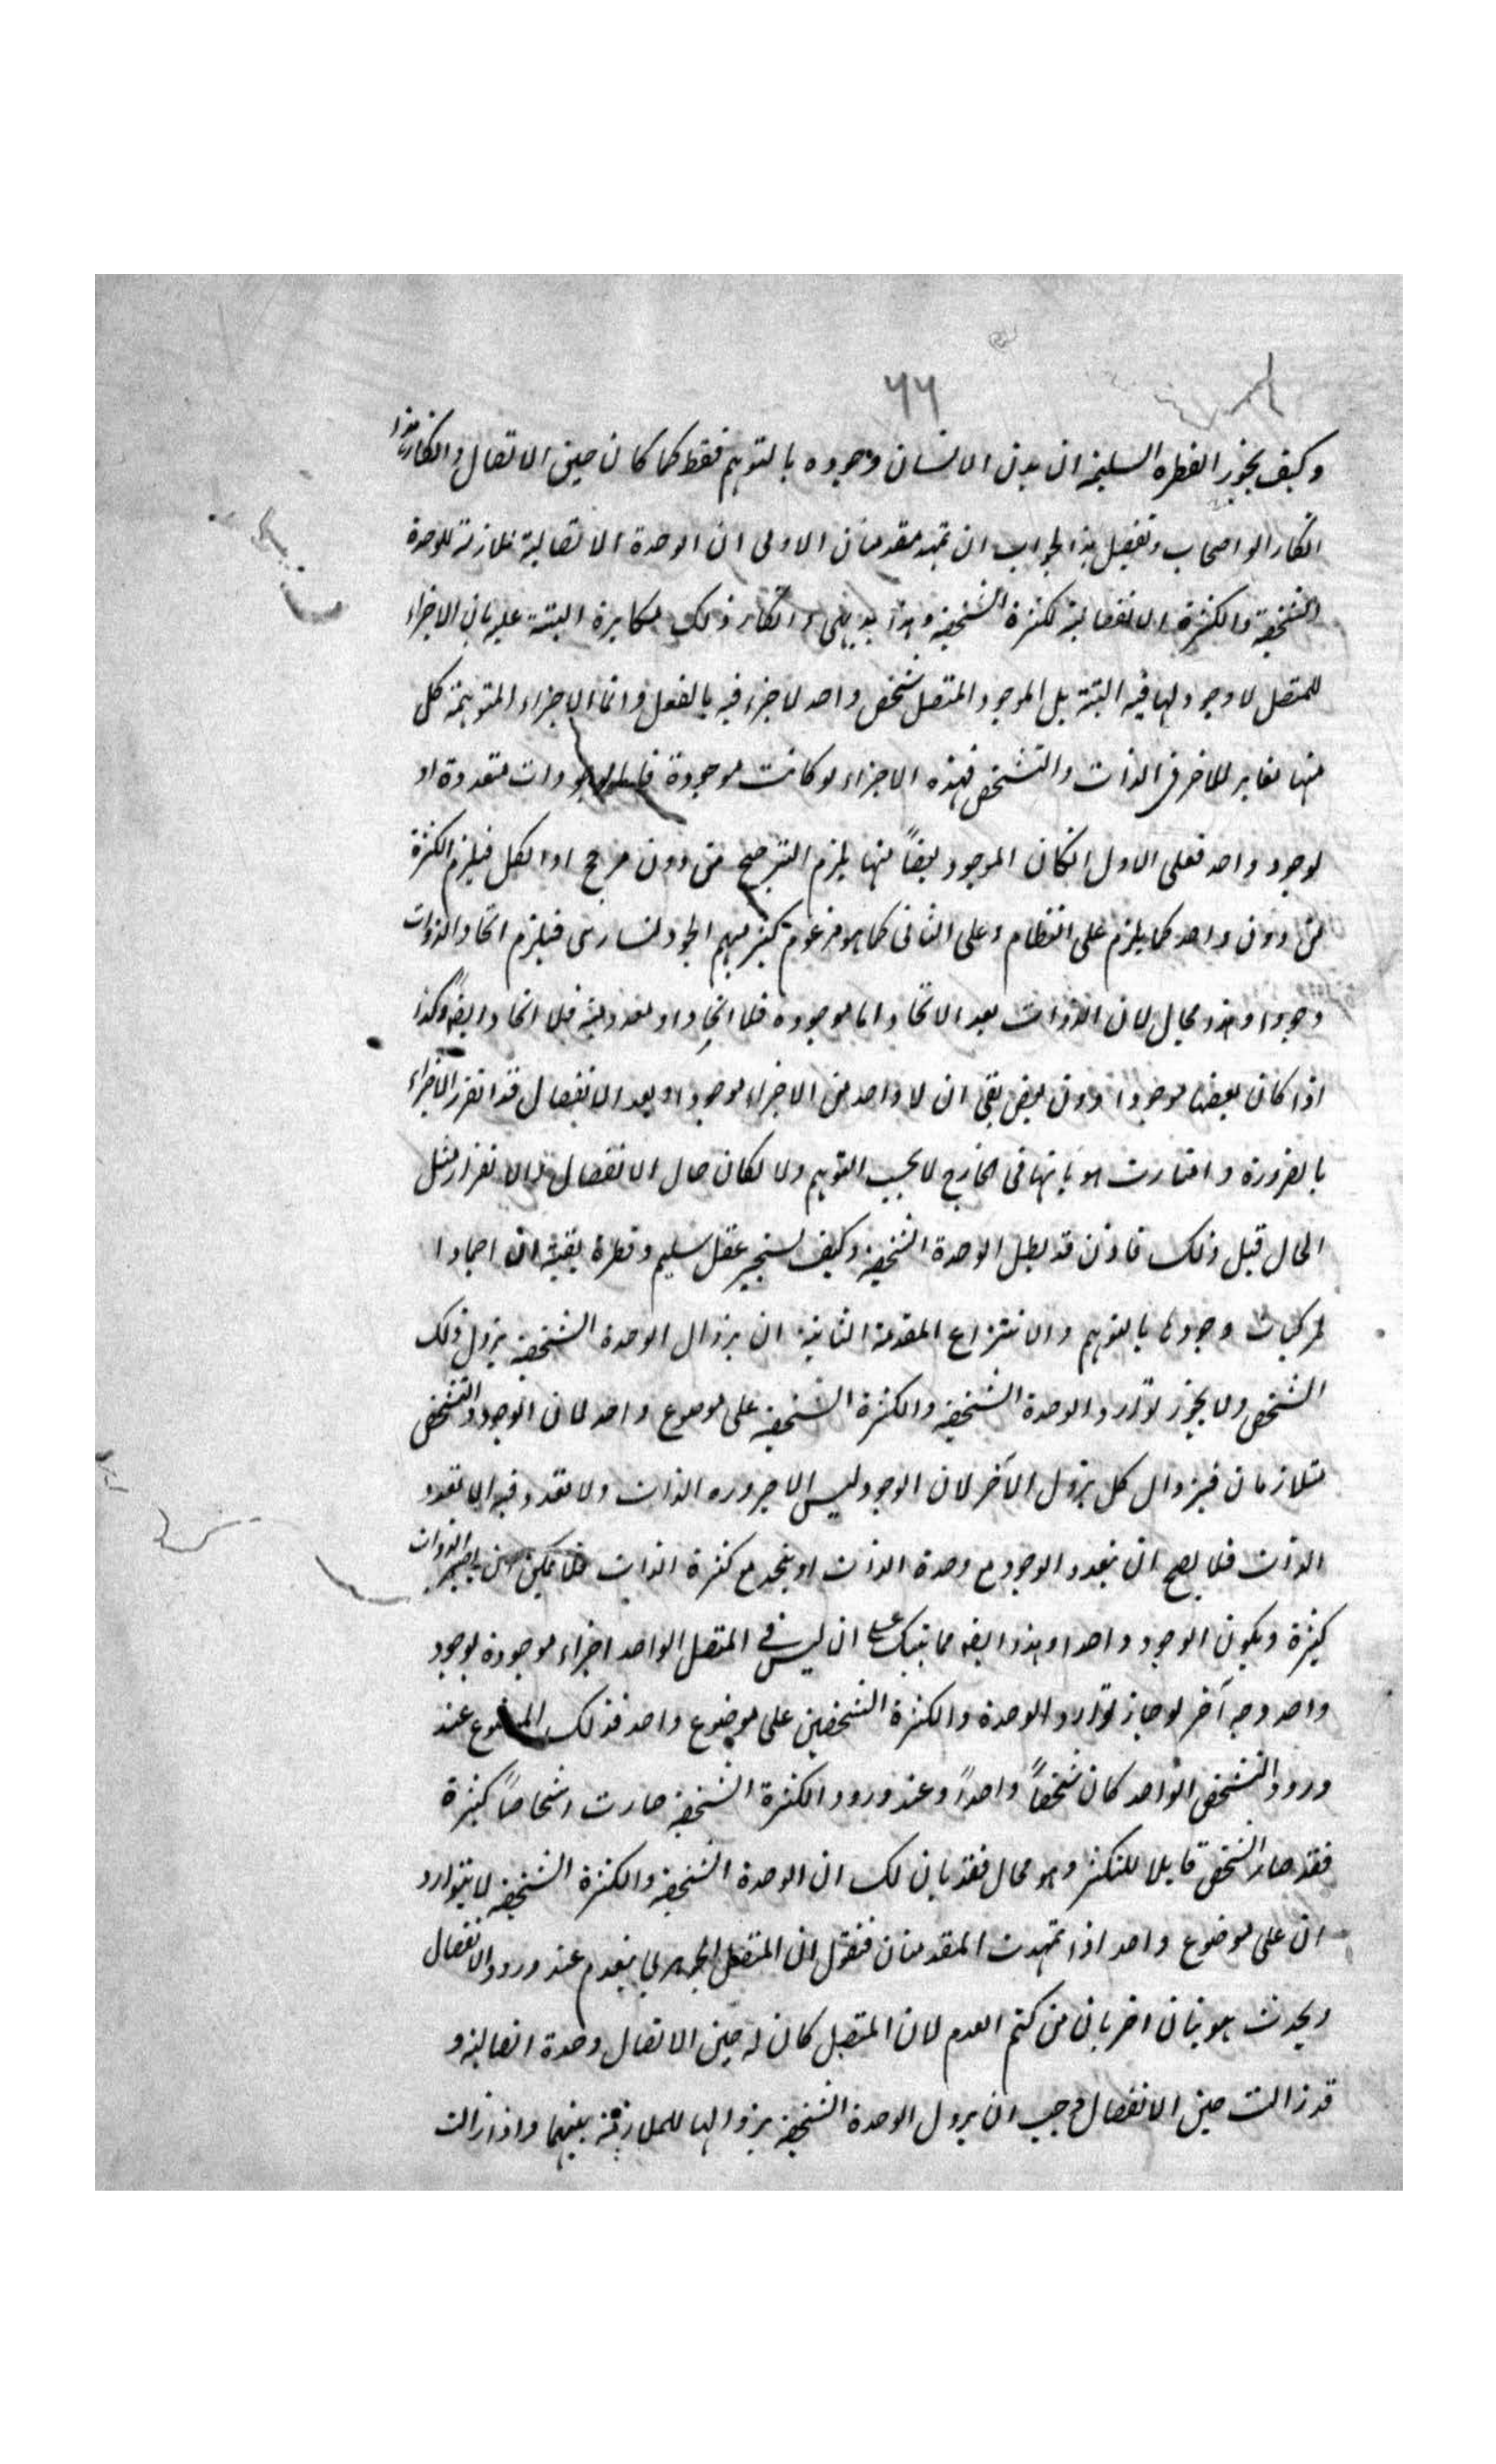 ٦٦
وكيف يجوز الفطره السليمة ان بدن الانسان وجوده بالتوهم فقط كما كان حين الاتصال وانكار هذا
انكار الواضحات وتفصيل هذا الجواب ان تمهد مقدمتان الاولى ان الوحدة الاتصالية ملازمة للوحدة
الشخصية والكثرة الانفصالية لكثرة الشخصية وهذا بديهي وانكار ذلك مكابرة البتة عليه بان الاجزاء
للمتصل لا وجود لها فيه البتة بل الموجود المتصل شخص واحد لا جزء فيه بالفعل وانما الاجزاء المتوهمة كل
منها مغاير للاخر في الذات والتشخص فهذه الاجزاء لو كانت موجودة فاما بوجودات متعددة او
لوجود واحد فعلى الاول انكان الموجود بعضاً منها يلزم الترجيح من دون مرجح او الكل فيلزم الكثرة
من دون واحد كما يلزم على النظام وعلى الثاني كما هو مزعوم كثير منهم الجونسارى فيلزم اتحاد الذوات
وجودا وهذا محال لان الذوات بعد الاتحاد اما موجودة فلا اتحاد او معدومة فلا اتحاد ايضا وكذا
اذا كان بعضها موجودا دون بعض بقى ان لا واحد من الاجزاء موجودا وبعد الانفصال قد انفرز الاجزاء
بالضرورة وامتازت هوياتها في الخارج لا بحسب التوهم ولا لكان حال الانفصال والانفراز مثل
الحال قبل ذلك فاذن قد بطل الوحدة الشخصية وكيف يستجيز عقل سليم وفطرة نقية ان اجسادا
لمركبات وجودها بالتوهم والانتزاع المقدمة الثانية ان بزوال الوحدة الشخصية يزول ذلك
الشخص ولا يجوز توارد الوحدة الشخصية والكثرة الشخصية على موضوع واحد لان الوجود والتشخص
متلازمان فبزوال كل يزول الآخر لان الوجود ليس الا صيرورة الذات ولا تعدد فيه الا بتعدد
الذات فلا يصح ان يتعدد الوجود مع وحدة الذات او يتحد مع كثرة الذات فلا يمكن ان يصير الذوات
كثيرة ويكون الوجود واحدا وهذا ايضا مما ينبهك على ان ليس في المتصل الواحد اجزاء موجودة بوجود
واحد وجه آخر لو جاز توارد الوحدة والكثرة الشخصيتين على موضوع واحد فذلك الموضوع عند
ورود التشخص الواحد كان شخصاً واحداً وعند ورود الكثرة الشخصية صارت اشخاصاً كثيرة
فقد صار الشخص قابلا للتكثر وهو محال فقد بان لك ان الوحدة الشخصية والكثرة الشخصية لا يتوارد
ان على موضوع واحد اذا تمهدت المقدمتان فنقول ان المتصل الجوهري ينعدم عند ورود الانفصال
ويحدث هويتان اخريان من كتم العدم لان المتصل كان له حين الاتصال وحدة اتصالية و
قد زالت حين الانفصال فوجب ان يزول الوحدة الشخصية بزوالها للملازمة بينهما واذا زالت